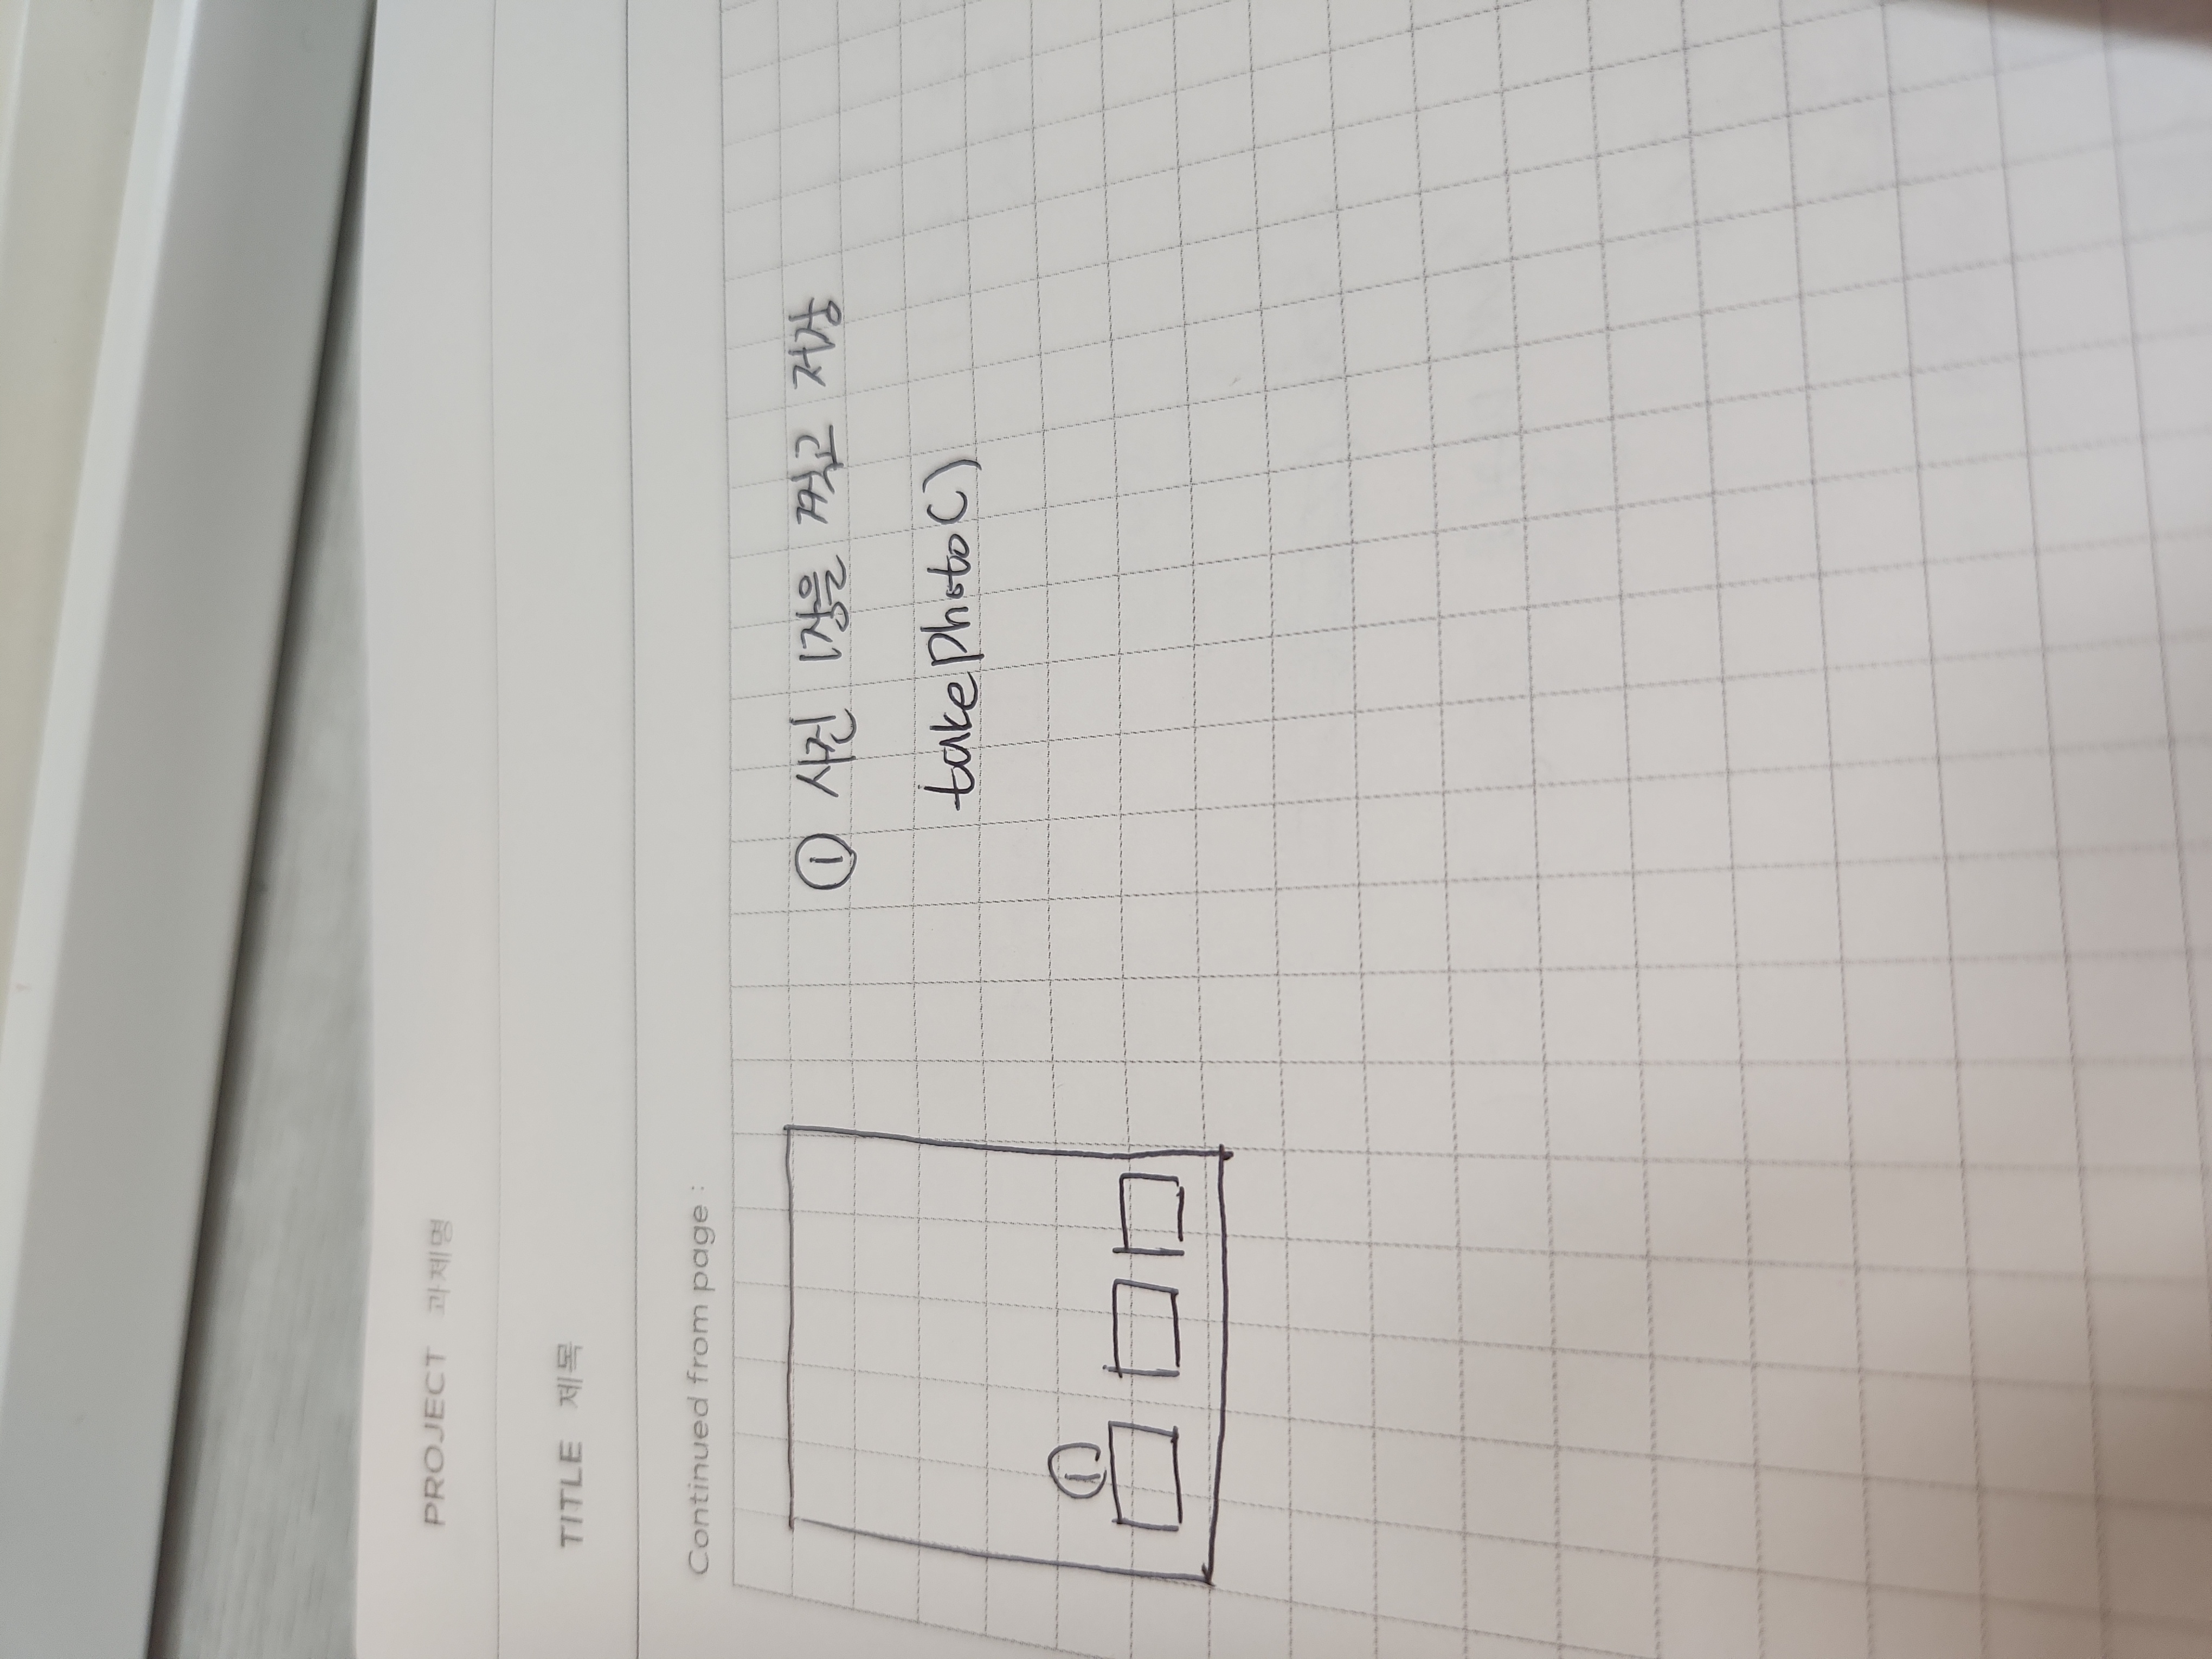 PROJECT 과제명
TITLE 제목
Continued from page :
① 사진 1장을 찍고 저장
takePhoto()
①